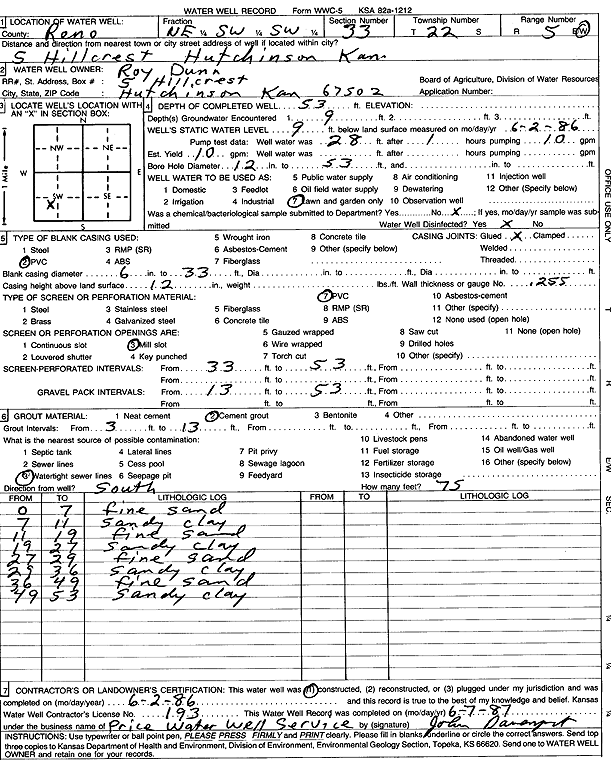 WATER WELL RECORD Form WWC-5 KSA 82a-1212
1 LOCATION OF WATER WELL: Fraction Section Number Township Number Range Number
County: Reno NE ¼ SW ¼ SW ¼ 33 T 22 S R 5 E/W
Distance and direction from nearest town or city street address of well if located within city?
5 Hillcrest Hutchinson Kan
2 WATER WELL OWNER: Roy Dunn
RR#, St. Address, Box # : 5 Hillcrest Board of Agriculture, Division of Water Resources
City, State, ZIP Code : Hutchinson Kan 67502 Application Number:
3 LOCATE WELL'S LOCATION WITH AN "X" IN SECTION BOX:
N
NW NE
W E
SW SE
X
S
1 Mile
4 DEPTH OF COMPLETED WELL 53 ft. ELEVATION:
Depth(s) Groundwater Encountered 1. 9 ft. 2. ft. 3. ft.
WELL'S STATIC WATER LEVEL 9 ft. below land surface measured on mo/day/yr 6-2-86
Pump test data: Well water was 28 ft. after 1 hours pumping 10 gpm
Est. Yield 10 gpm: Well water was ft. after hours pumping gpm
Bore Hole Diameter 12 in. to 53 ft., and in. to ft.
WELL WATER TO BE USED AS: 5 Public water supply 8 Air conditioning 11 Injection well
1 Domestic 3 Feedlot 6 Oil field water supply 9 Dewatering 12 Other (Specify below)
2 Irrigation 4 Industrial 7 Lawn and garden only 10 Observation well
Was a chemical/bacteriological sample submitted to Department? Yes No X ; If yes, mo/day/yr sample was submitted
Water Well Disinfected? Yes X No
5 TYPE OF BLANK CASING USED: 5 Wrought iron 8 Concrete tile CASING JOINTS: Glued X Clamped
1 Steel 3 RMP (SR) 6 Asbestos-Cement 9 Other (specify below) Welded
2 PVC 4 ABS 7 Fiberglass Threaded
Blank casing diameter 6 in. to 33 ft., Dia in. to ft., Dia in. to ft.
Casing height above land surface 12 in., weight lbs./ft. Wall thickness or gauge No. .255
TYPE OF SCREEN OR PERFORATION MATERIAL: 7 PVC 10 Asbestos-cement
1 Steel 3 Stainless steel 5 Fiberglass 8 RMP (SR) 11 Other (specify)
2 Brass 4 Galvanized steel 6 Concrete tile 9 ABS 12 None used (open hole)
SCREEN OR PERFORATION OPENINGS ARE: 5 Gauzed wrapped 8 Saw cut 11 None (open hole)
1 Continuous slot 3 Mill slot 6 Wire wrapped 9 Drilled holes
2 Louvered shutter 4 Key punched 7 Torch cut 10 Other (specify)
SCREEN-PERFORATED INTERVALS: From 33 ft. to 53 ft., From ft. to ft.
From ft. to ft., From ft. to ft.
GRAVEL PACK INTERVALS: From 13 ft. to 53 ft., From ft. to ft.
From ft. to ft., From ft. to ft.
6 GROUT MATERIAL: 1 Neat cement 2 Cement grout 3 Bentonite 4 Other
Grout Intervals: From 3 ft. to 13 ft., From ft. to ft., From ft. to ft.
What is the nearest source of possible contamination: 10 Livestock pens 14 Abandoned water well
1 Septic tank 4 Lateral lines 7 Pit privy 11 Fuel storage 15 Oil well/Gas well
2 Sewer lines 5 Cess pool 8 Sewage lagoon 12 Fertilizer storage 16 Other (specify below)
3 Watertight sewer lines 6 Seepage pit 9 Feedyard 13 Insecticide storage
Direction from well? South How many feet? 75
FROM TO LITHOLOGIC LOG FROM TO LITHOLOGIC LOG
0 7 fine sand
7 11 sandy clay
11 19 fine sand
19 27 sandy clay
27 29 fine sand
29 36 sandy clay
36 49 fine sand
49 53 sandy clay
7 CONTRACTOR'S OR LANDOWNER'S CERTIFICATION: This water well was (1) constructed, (2) reconstructed, or (3) plugged under my jurisdiction and was
completed on (mo/day/year) 6-2-86 and this record is true to the best of my knowledge and belief. Kansas
Water Well Contractor's License No. 193 This Water Well Record was completed on (mo/day/yr) 6-7-87
under the business name of Price Water Well Service by (signature) John Davenport
INSTRUCTIONS: Use typewriter or ball point pen, PLEASE PRESS FIRMLY and PRINT clearly. Please fill in blanks, underline or circle the correct answers. Send top
three copies to Kansas Department of Health and Environment, Division of Environment, Environmental Geology Section, Topeka, KS 66620. Send one to WATER WELL
OWNER and retain one for your records.
OFFICE USE ONLY
T
R
E/W
SEC.
¼
¼
¼